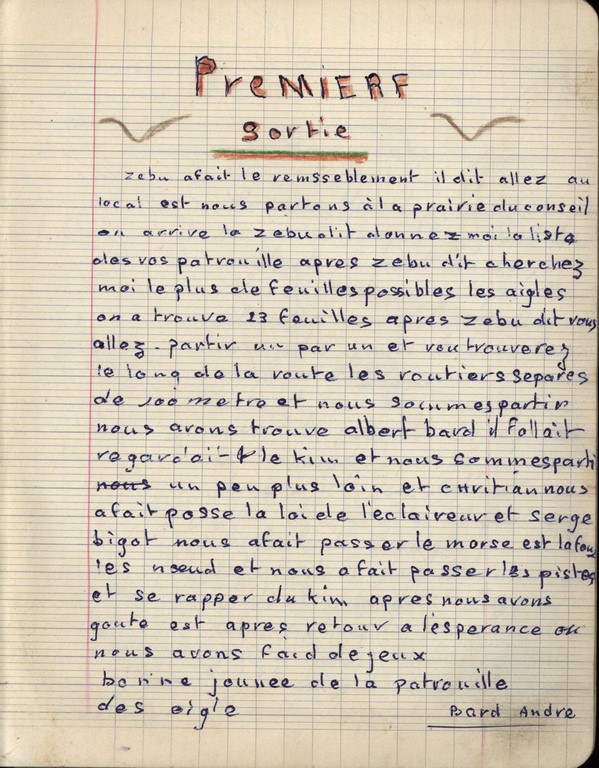 PREMIERE
sortie
zebu afait le remsseblement il dit allez au
local est nous partons à la prairie du conseil
on arrive la zebu dit donnez moi la liste
des vos patrouille apres zebu dit cherchez
moi le plus de feuilles possibles les aigles
on a trouve 23 feuilles apres zebu dit vous
allez partir un par un et vou trouverez
le long de la route les routiers separes
de 100 metre et nous sommes partir
nous avons trouve albert bard il follait
regardai le kim et nous sommes parti
nous un peu plus loin et chritian nous
afait posse la loi de l'eclaireur et serge
bigot nous afait passer le morse est la
les nseud et nous a fait passer les pistes
et se rapper du kim apres nous avons
goute est apres retour a l'esperance ou
nous avons faid de jeux
bonne jounee de la patrouille
des eigle
Bard Andre